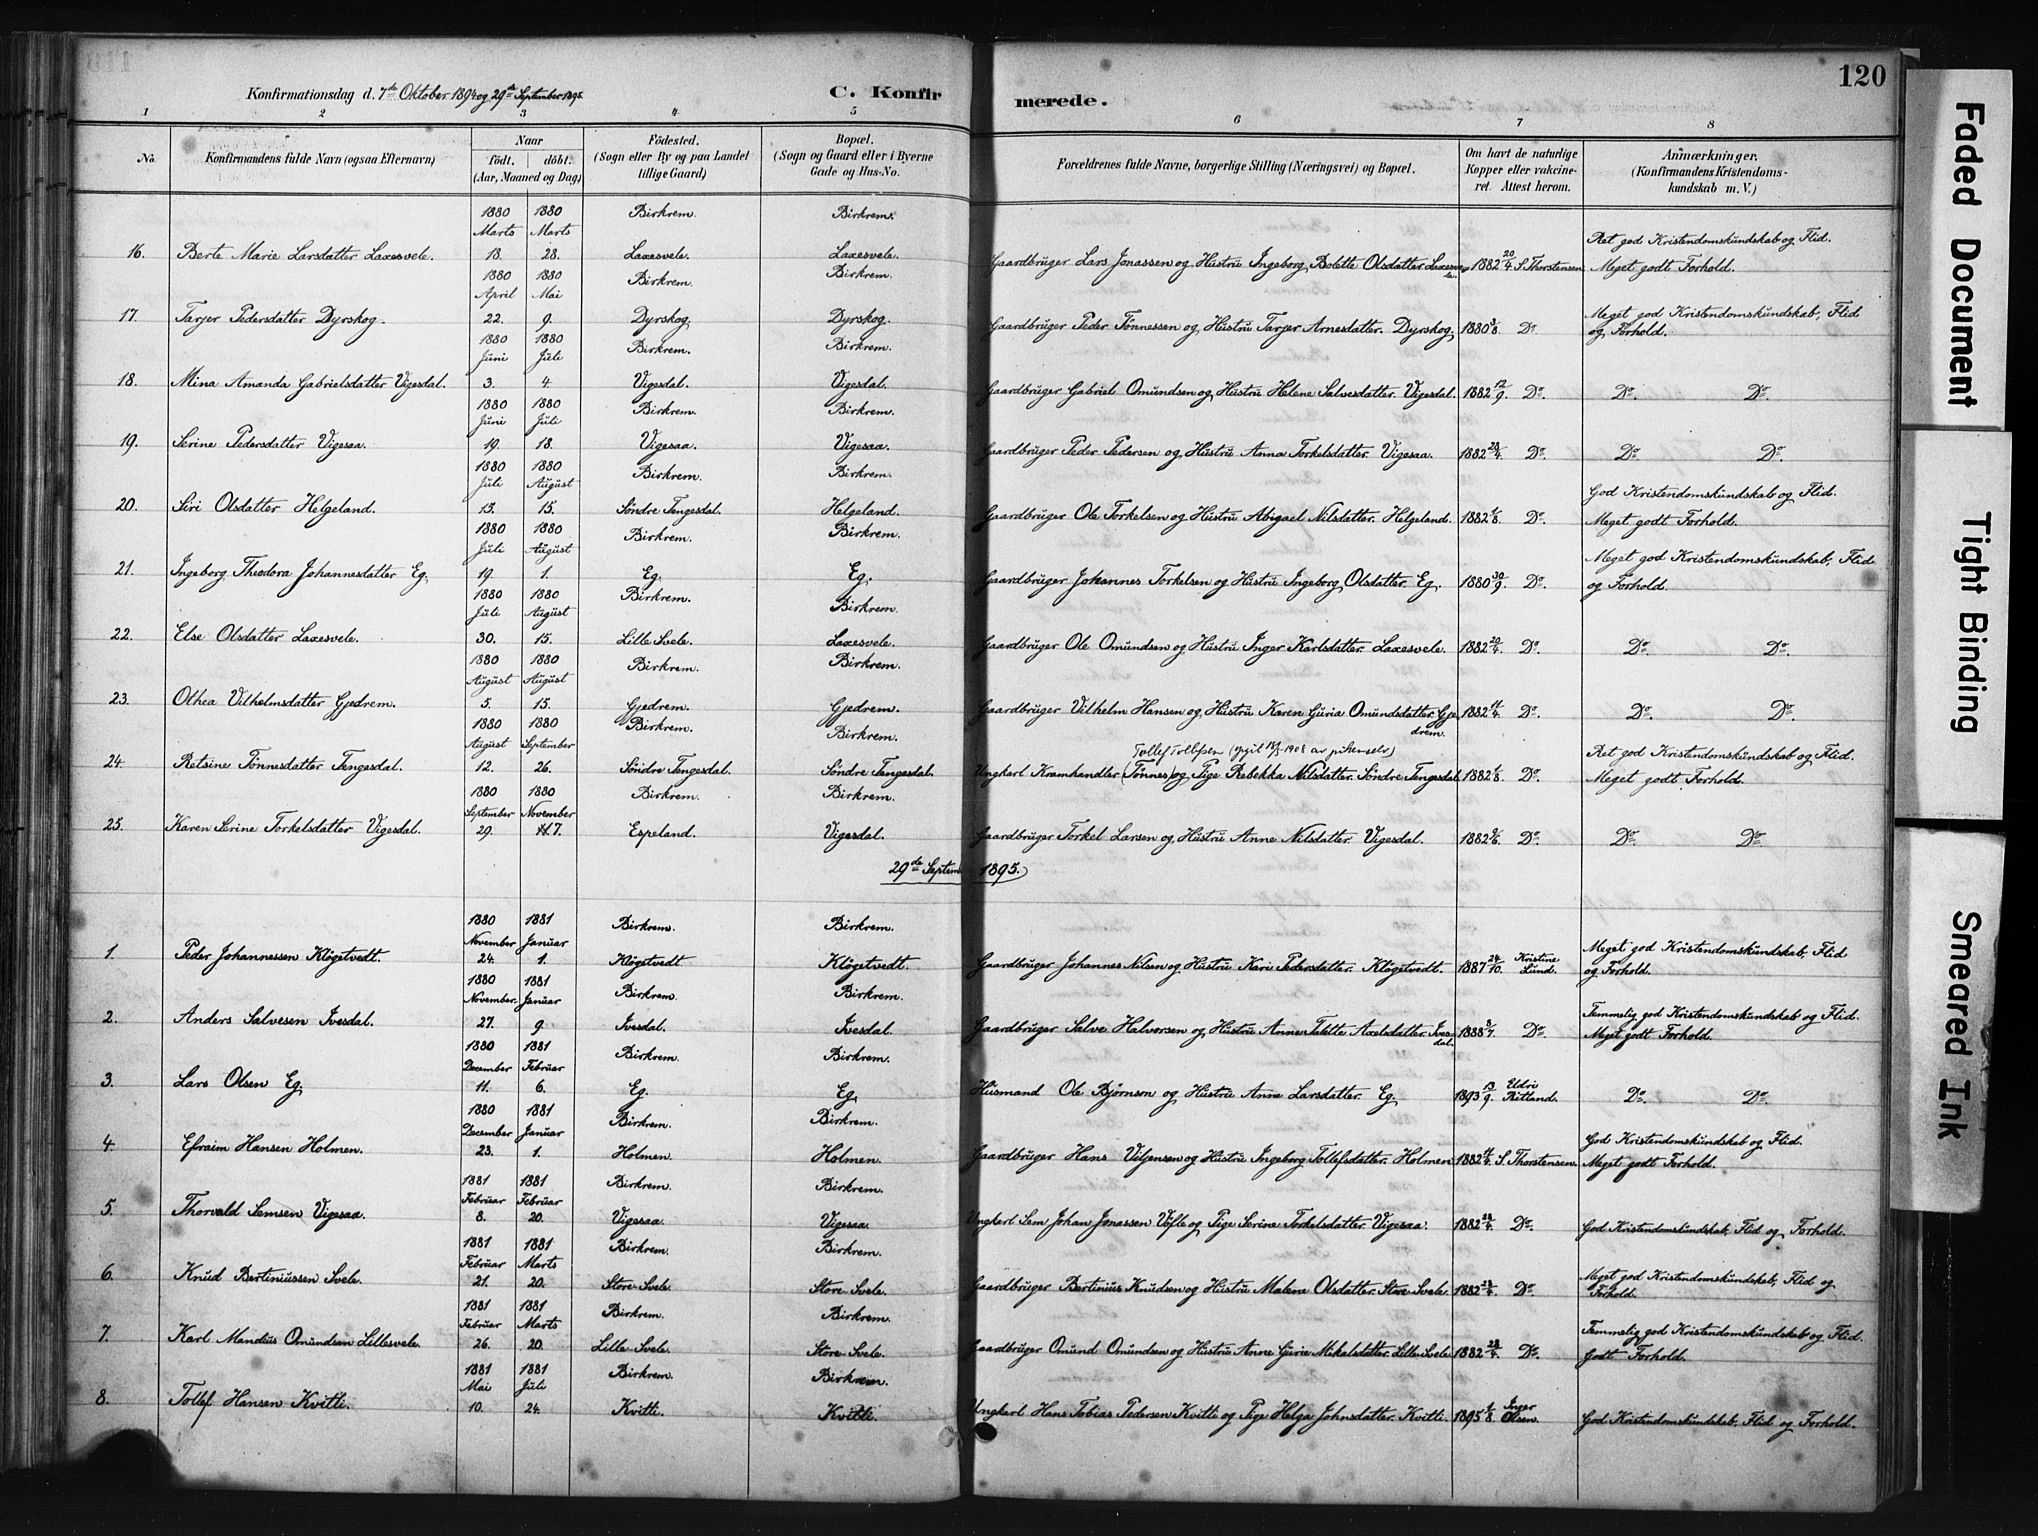 120
Konfirmationsdag d. 7de Oktober 1894 og 29de September 1895.
C. Konfirmerede.
1 2 3 4 5 6 7 8
No.
Konfirmandens fulde Navn (ogsaa Efternavn)
Naar
födt. döbt.
(Aar, Maaned og Dag)
Födested.
(Sogn eller By og paa Landet
tillige Gaard)
Bopæl.
(Sogn og Gaard eller i Byerne
Gade og Hus-No.
Forældrenes fulde Navne, borgerlige Stilling (Næringsvei) og Bopæl.
Om havt de naturlige
Kopper eller vakcine-
ret. Attest herom.
Anmærkninger.
(Konfirmandens Kristendoms-
kundskab m. V.)
1880 1880 Birkrem. Birkrem.
Marts Marts
16. Berte Marie Larsdatter Laxesvele. 18. 28. Laxesvele. Laxesvele. Gaardbruger Lars Jonassen og Hustru Ingeborg Bolette Olsdatter Laxesvele. 1882 20/4 S. Thorstensen. Ret god Kristendomskundskab og Flid. Meget godt Forhold.
1880 1880 Birkrem. Birkrem.
April Mai
17. Tarjer Pedersdatter Dyrskog. 22. 9. Dyrskog. Dyrskog. Gaardbruger Peder Tønnessen og Hustru Tarjer Arnesdatter. Dyrskog. 1880 3/8. Do. Meget god Kristendomskundskab, Flid og Forhold.
1880 1880 Birkrem. Birkrem.
Juni Juli
18. Mina Amanda Gabrielsdatter Vigesdal. 3. 4 Vigesdal. Vigesdal. Gaardbruger Gabriel Omundsen og Hustru Helene Salvesdatter. Vigesdal. 1882 12/9. Do. Do. Do.
1880 1880 Birkrem. Birkrem.
Juni Juli
19. Serine Pedersdatter Vigesaa. 19. 18. Vigesaa. Vigesaa. Gaardbruger Peder Pedersen og Hustru Anna Torkelsdatter. Vigesaa. 1882 28/4. Do. Do. Do.
1880 1880 Birkrem. Birkrem.
Juli August
20. Siri Olsdatter Helgeland. 13. 15. Söndre Tengesdal. Helgeland. Gaardbruger Ole Torkelsen og Hustru Abigael Nilsdatter. Helgeland. 1882 1/8. Do. God Kristendomskundskab og Flid. Meget godt Forhold.
1880 1880 Birkrem. Birkrem.
Juli August
21. Ingeborg Theodora Johannesdatter Eg. 19. 1. Eg. Eg. Gaardbruger Johannes Torkelsen og Hustru Ingeborg Olsdatter. Eg. 1880 30/9. Do. Meget god Kristendomskundskab, Flid og Forhold.
1880 1880 Birkrem. Birkrem.
Juli August
22. Else Olsdatter Laxesvele. 30. 15. Lille Svele. Laxesvele. Gaardbruger Ole Omundsen og Hustru Inger Karlsdatter. Laxesvele. 1882 20/4. Do. Do. Do.
1880 1880 Birkrem. Birkrem.
August August
23. Olhea Vilhelmsdatter Gjedrem. 5. 15. Gjedrem. Gjedrem. Gaardbruger Vilhelm Hansen og Hustru Karen Guria Omundsdatter. Gjedrem. 1882 11/4. Do. Do. Do.
1880 1880 Birkrem. Birkrem.
August September
Tollef Tollefsen
24. Retsine Tønnesdatter Tengesdal. 12. 26. Söndre Tengesdal. Söndre Tengesdal. Ungkarl Kramhandler (Tønnes) og Pige Rebekka Nilsdatter. Söndre Tengesdal. 1882 1/8. Do. Ret god Kristendomskundskab og Flid. Meget godt Forhold.
1880 1880 Birkrem. Birkrem.
September November
25. Karen Serine Torkelsdatter Vigesdal. 29. 7. Espeland. Vigesdal. Gaardbruger Torkel Larsen og Hustru Anne Nilsdatter. Vigesdal. 1882 9/6. Do. Do. Do.
29de Septem 1895.
1880 1881 Birkrem. Birkrem.
November Januar
1. Peder Johannessen Klögetvedt. 24. 1. Klögetvedt Klögetvedt. Gaardbruger Johannes Nilsen og Hustru Kari Pedersdatter. Klögetvedt. 1887 24/10. Kristine Lund. Meget god Kristendomskundskab, Flid og Forhold.
1880 1881 Birkrem. Birkrem.
November. Januar
2. Anders Salvesen Ivesdal. 27. 9. Ivesdal. Ivesdal. Gaardbruger Salve Halvorsen og Hustru Anne Tolette Axelsdatter. Ivesdal. 1888 3/7. Do. Temmelig god Kristendomskundskab og Flid. Meget godt Forhold.
1880 1881 Birkrem. Birkrem.
December Februar
3. Lars Olsen Eg. 11. 6. Eg. Eg. Husmand Ole Bjørnson og Hustru Anne Larsdatter. Eg. 1893 13/9. Eldri Ritland. Do. Do.
1880 1881 Birkrem. Birkrem.
December Januar
4. Efraim Hansen Holmen. 23. 1. Holmen. Holmen. Gaardbruger Hans Viljensen og Hustru Ingeborg Tollefsdatter. Holmen. 1882 11/4. S. Thorstensen. God Kristendomskundskab og Flid. Meget godt Forhold.
1881 1881 Birkrem. Birkrem.
Februar Februar
5. Thorvald Semsen Vigesaa. 8. 20. Vigesaa. Vigesaa. Ungkarl Sem Johan Jonassen og Pige Serine Torkelsdatter. Vigesaa. 1882 28/4. Do. God Kristendomskundskab, Flid og Forhold.
1881 1881 Birkrem. Birkrem.
Februar Marts
6. Knud Bertiniussen Svele. 21. 20. Store Svele. Store Svele. Gaardbruger Bertinius Knudsen og Hustru Malene Olsdatter. Store Svele. 1882 28/4. Do. Meget god Kristendomskundskab, Flid og Forhold.
1881 1881 Birkrem. Birkrem.
Februar Marts
7. Karl Mandius Omundsen Lillesvele. 26. 20. Lille Svele. Store Svele. Gaardbruger Omund Omundsen og Hustru Anne Gurie Mikalsdatter. Lille Svele. 1882 28/4. Do. Temmelig god Kristendomskundskab og Flid. Godt Forhold.
1881 1881 Birkrem. Birkrem.
Mai Juli
8. Tollef Hansen Kvitli. 10. 24. Kvitli. Kvitli. Ungkarl Hans Tobias Pedersen Kvitli og Pige Helga Johnsdatter. Kvitli. 1895 4/8. Inger Olsen. God Kristendomskundskab, Flid og Forhold.
Faded Document
Tight Binding
Smeared Ink